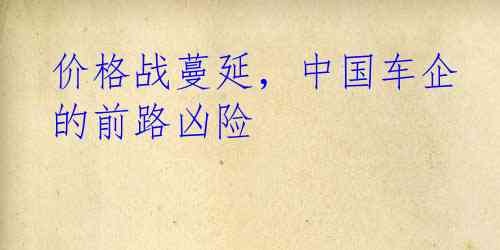 价格战蔓延，中国车企
的前路凶险